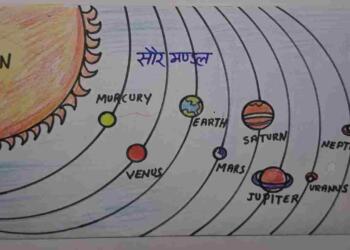 N
सौर मण्डल
MURCURY
EARTH
SATURN
NEPT
VENUS
MARS
JUPITER
URANUS